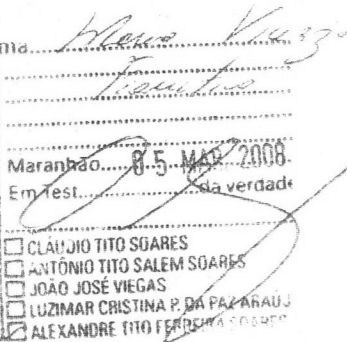 ma
Maranhão 05 MAR 2008
Em Test. da verdade
CLÁUDIO TITO SOARES
ANTÔNIO TITO SALEM SOARES
JOÃO JOSÉ VIEGAS
LUZIMAR CRISTINA P. DA PAZ ARAÚJ
ALEXANDRE TITO FERREIRA SOARES